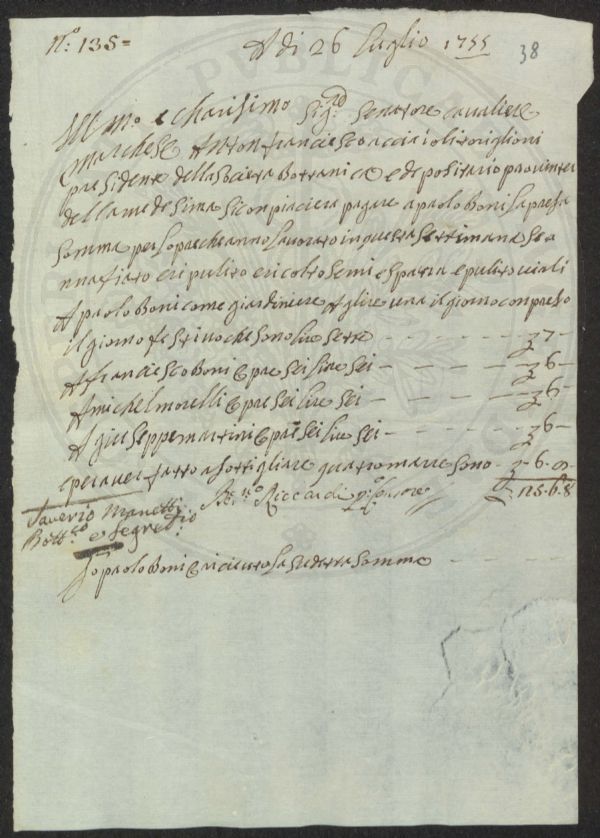 Nº: 135=
A di 26 luglio 1755
38
Ill mo e Charisimo Sig.re Senatore Cavaliere
Marchese Anton franciesco acciaioli toriglioni
presidente della Societa Bottanica e depositario provinter
della medesima Si conpiaciera pagare a paolo Boni la presa
Somma per lopre che anno lavorato in questa Settimana Se a
nnafiato e ripulito e ricolto Semi e Spazza e pulito viali
A paolo Boni come giardiniere A lire una il giorno conpreso
il giorno festivo che Sono lire Sette 7
A franciesco Boni e pre Sei lire Sei 6
A michel morelli e pre Sei lire Sei 6
A giuseppe martini e pre Sei lire Sei 6
e per aver fatto a Sottigliare quatro marre Sono - 6 - 8
25.6.8
Saverio Manetti
Bott.co e Segret.io
Riccardi
Io paolo Boni o ricieuto la Sudetta Somma
PVBLICA